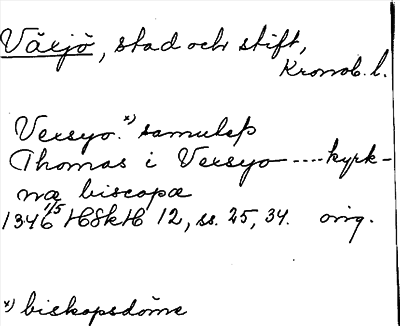 Växjö, stad och stift,
Kronob. l.
Vexsyo.x) samuleþ
Thomas i Vexsyo ---- kyrk-
næ biscopæ
1346 1/5 HSkH 12, ss. 25, 34. orig.
x) biskopsdöme